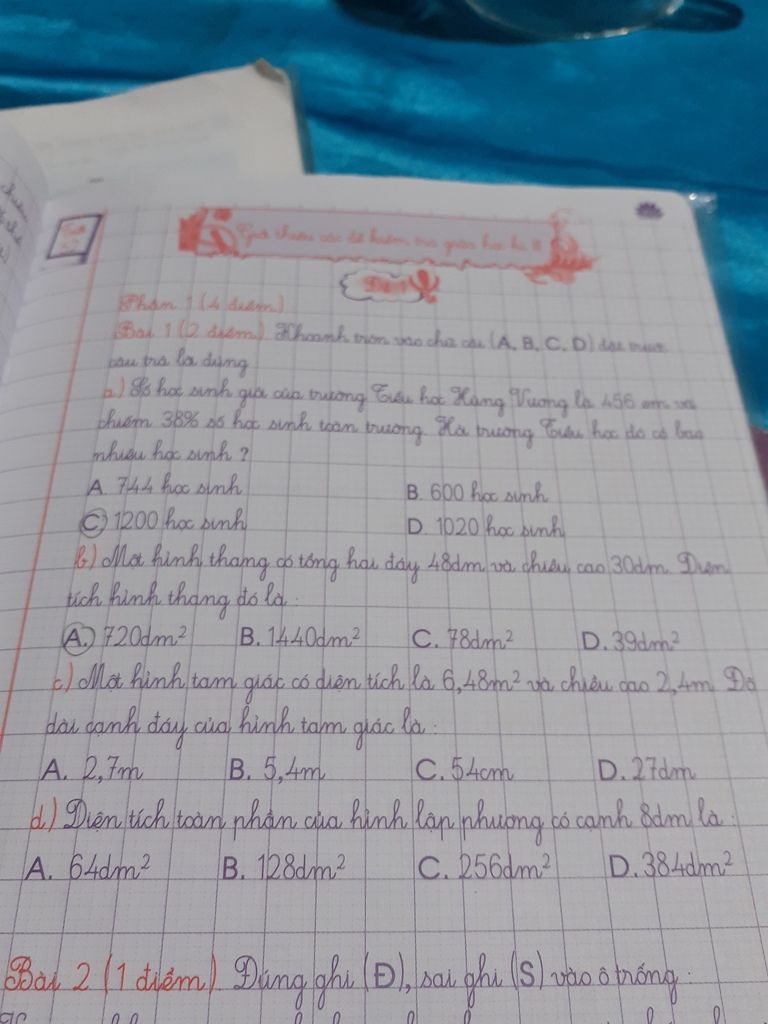 Tuần
các đề kiểm tra giữa học kì II
Đề 1
Phần 1 (4 điểm)
Bài 1 (2 điểm) Khoanh tròn vào chữ cái (A, B, C, D) đặt trước
câu trả lời đúng
a) Số học sinh giỏi của trường Tiểu học Hùng Vương là 456 em và
chiếm 38% số học sinh toàn trường. Hỏi trường Tiểu học đó có bao
nhiêu học sinh ?
A. 744 học sinh B. 600 học sinh
C) 1200 học sinh D. 1020 học sinh
b) Một hình thang có tổng hai đáy 48dm và chiều cao 30dm. Diện
tích hình thang đó là :
A. 720dm² B. 1440dm² C. 78dm² D. 39dm²
c) Một hình tam giác có diện tích là 6,48m² và chiều cao 2,4m. Độ
dài cạnh đáy của hình tam giác là :
A. 2,7m B. 5,4m C. 54cm D. 27dm
d) Diện tích toàn phần của hình lập phương có cạnh 8dm là :
A. 64dm² B. 128dm² C. 256dm² D. 384dm²
Bài 2 (1 điểm) Đúng ghi (Đ), sai ghi (S) vào ô trống :